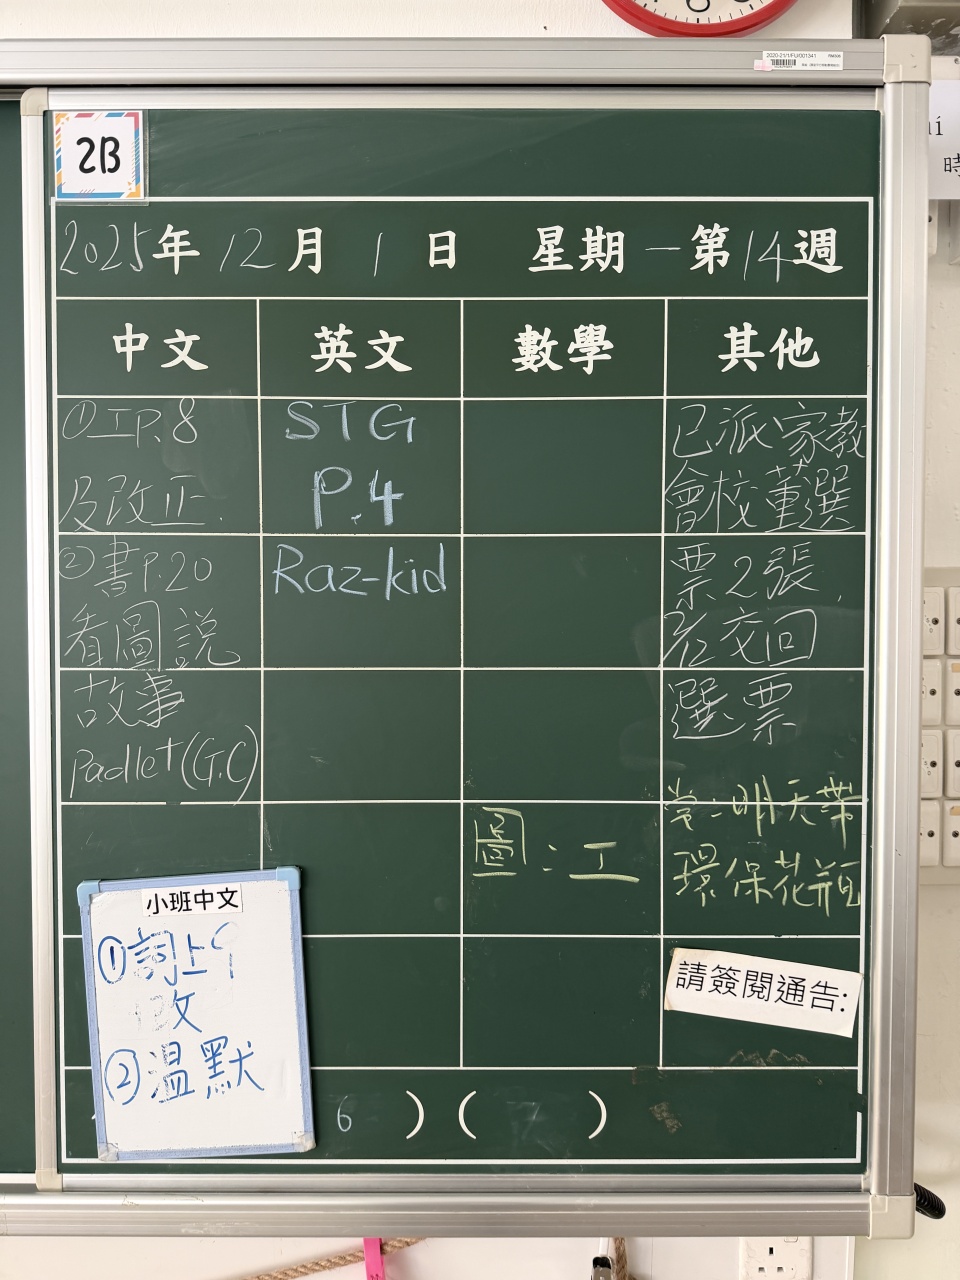 2020-21/1/FU/001341
2B
2025年12月1日 星期一第14週
中文 英文 數學 其他
①工P.8
及改正.
②書P.20
看圖說
故事
padlet(G.C)
STG
P.4
Raz-kid
圖:工
已派家教
會校董選
票2張,
交回
選票
常:明天帶
環保花瓶
請簽閱通告:
小班中文
①詞上9
改
②溫默
6 ) ( )
時